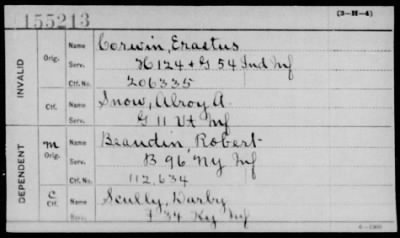 155213
(3-H-4)
INVALID
Orig. Name Corwin, Erastus
Serv. H 124 + G 54 Ind Inf
Ctf. No. 206335
Ctf. Name Snow, Alroy A.
Serv. G 11 Vt Inf
DEPENDENT
m Orig. Name Beaudin, Robert
Serv. B 96 Ny Inf
Ctf. No. 112,634
C Ctf. Name Scully, Darby
Serv. I 34 Ky Inf